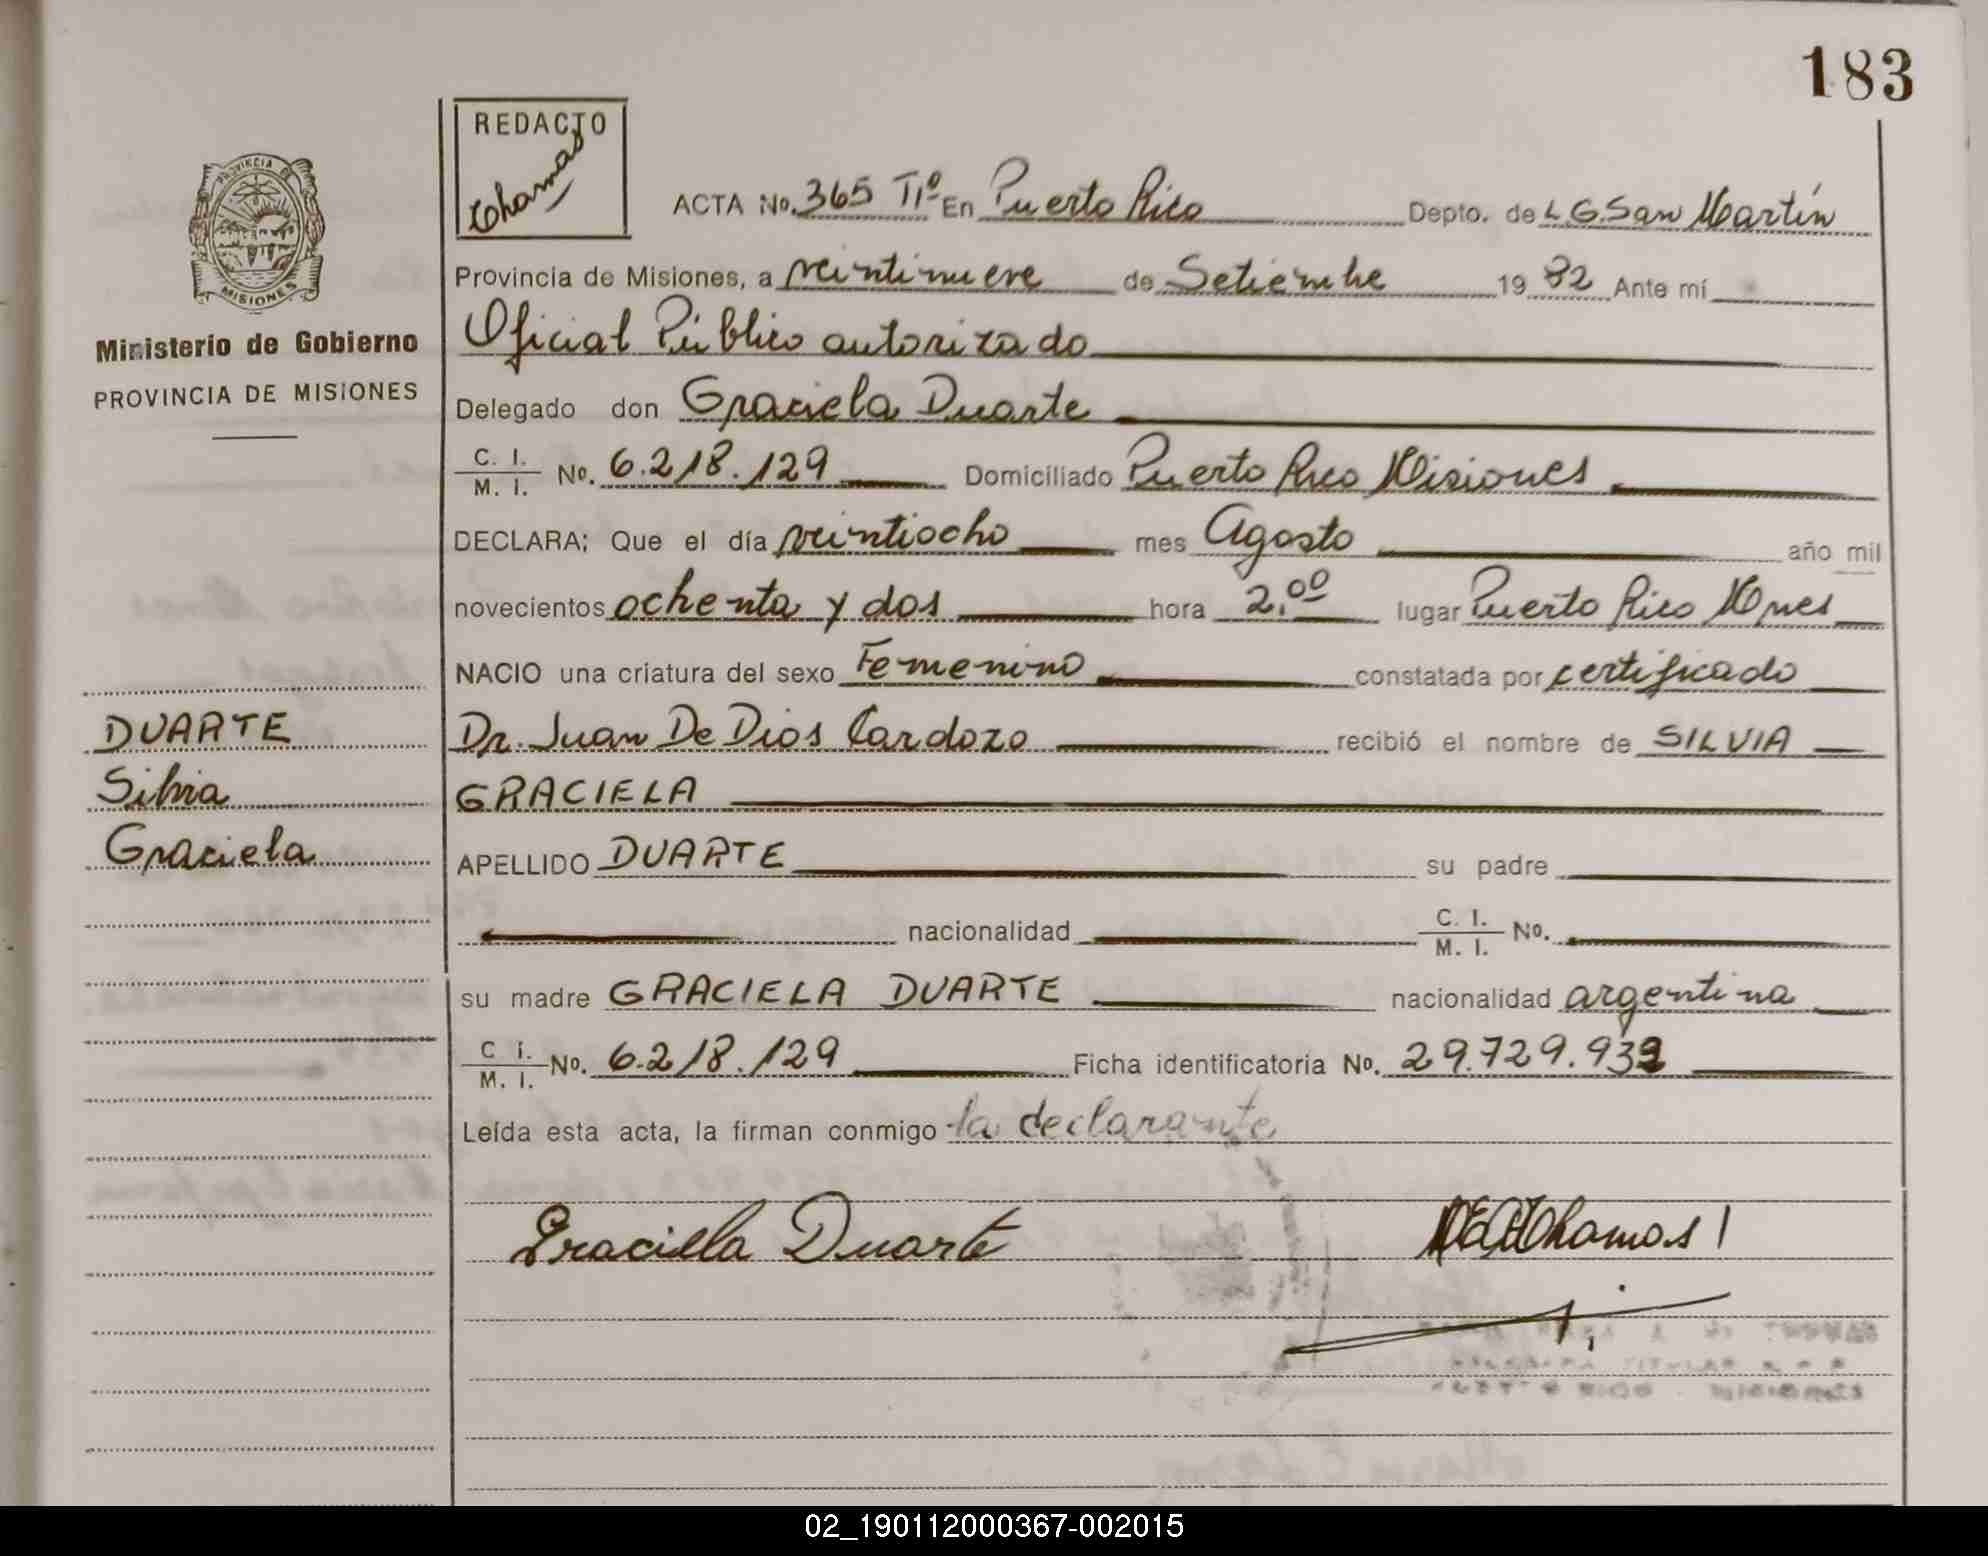 183
REDACTO
Chamas
PROVINCIA DE
MISIONES
Ministerio de Gobierno
PROVINCIA DE MISIONES
ACTA No. 365 Tº En Puerto Rico Depto. de L G.San Martín
Provincia de Misiones, a veintinueve de Setiembre 1982 Ante mí
Oficial Público autorizado
Delegado don Graciela Duarte
C. I. / M. I. No. 6.218.129 Domiciliado Puerto Rico Misiones
DECLARA; Que el día veintiocho mes Agosto año mil
novecientos ochenta y dos hora 2,00 lugar Puerto Rico Mnes
NACIO una criatura del sexo Femenino constatada por certificado
DUARTE
Dr. Juan De Dios Cardozo recibió el nombre de SILVIA
Silvia
GRACIELA
Graciela
APELLIDO DUARTE su padre
nacionalidad C. I. / M. I. No.
su madre GRACIELA DUARTE nacionalidad argentina
C I. / M. I. No. 6.218.129 Ficha identificatoria No. 29.729.932
Leída esta acta, la firman conmigo la declarante
Graciela Duarte
02_190112000367-002015